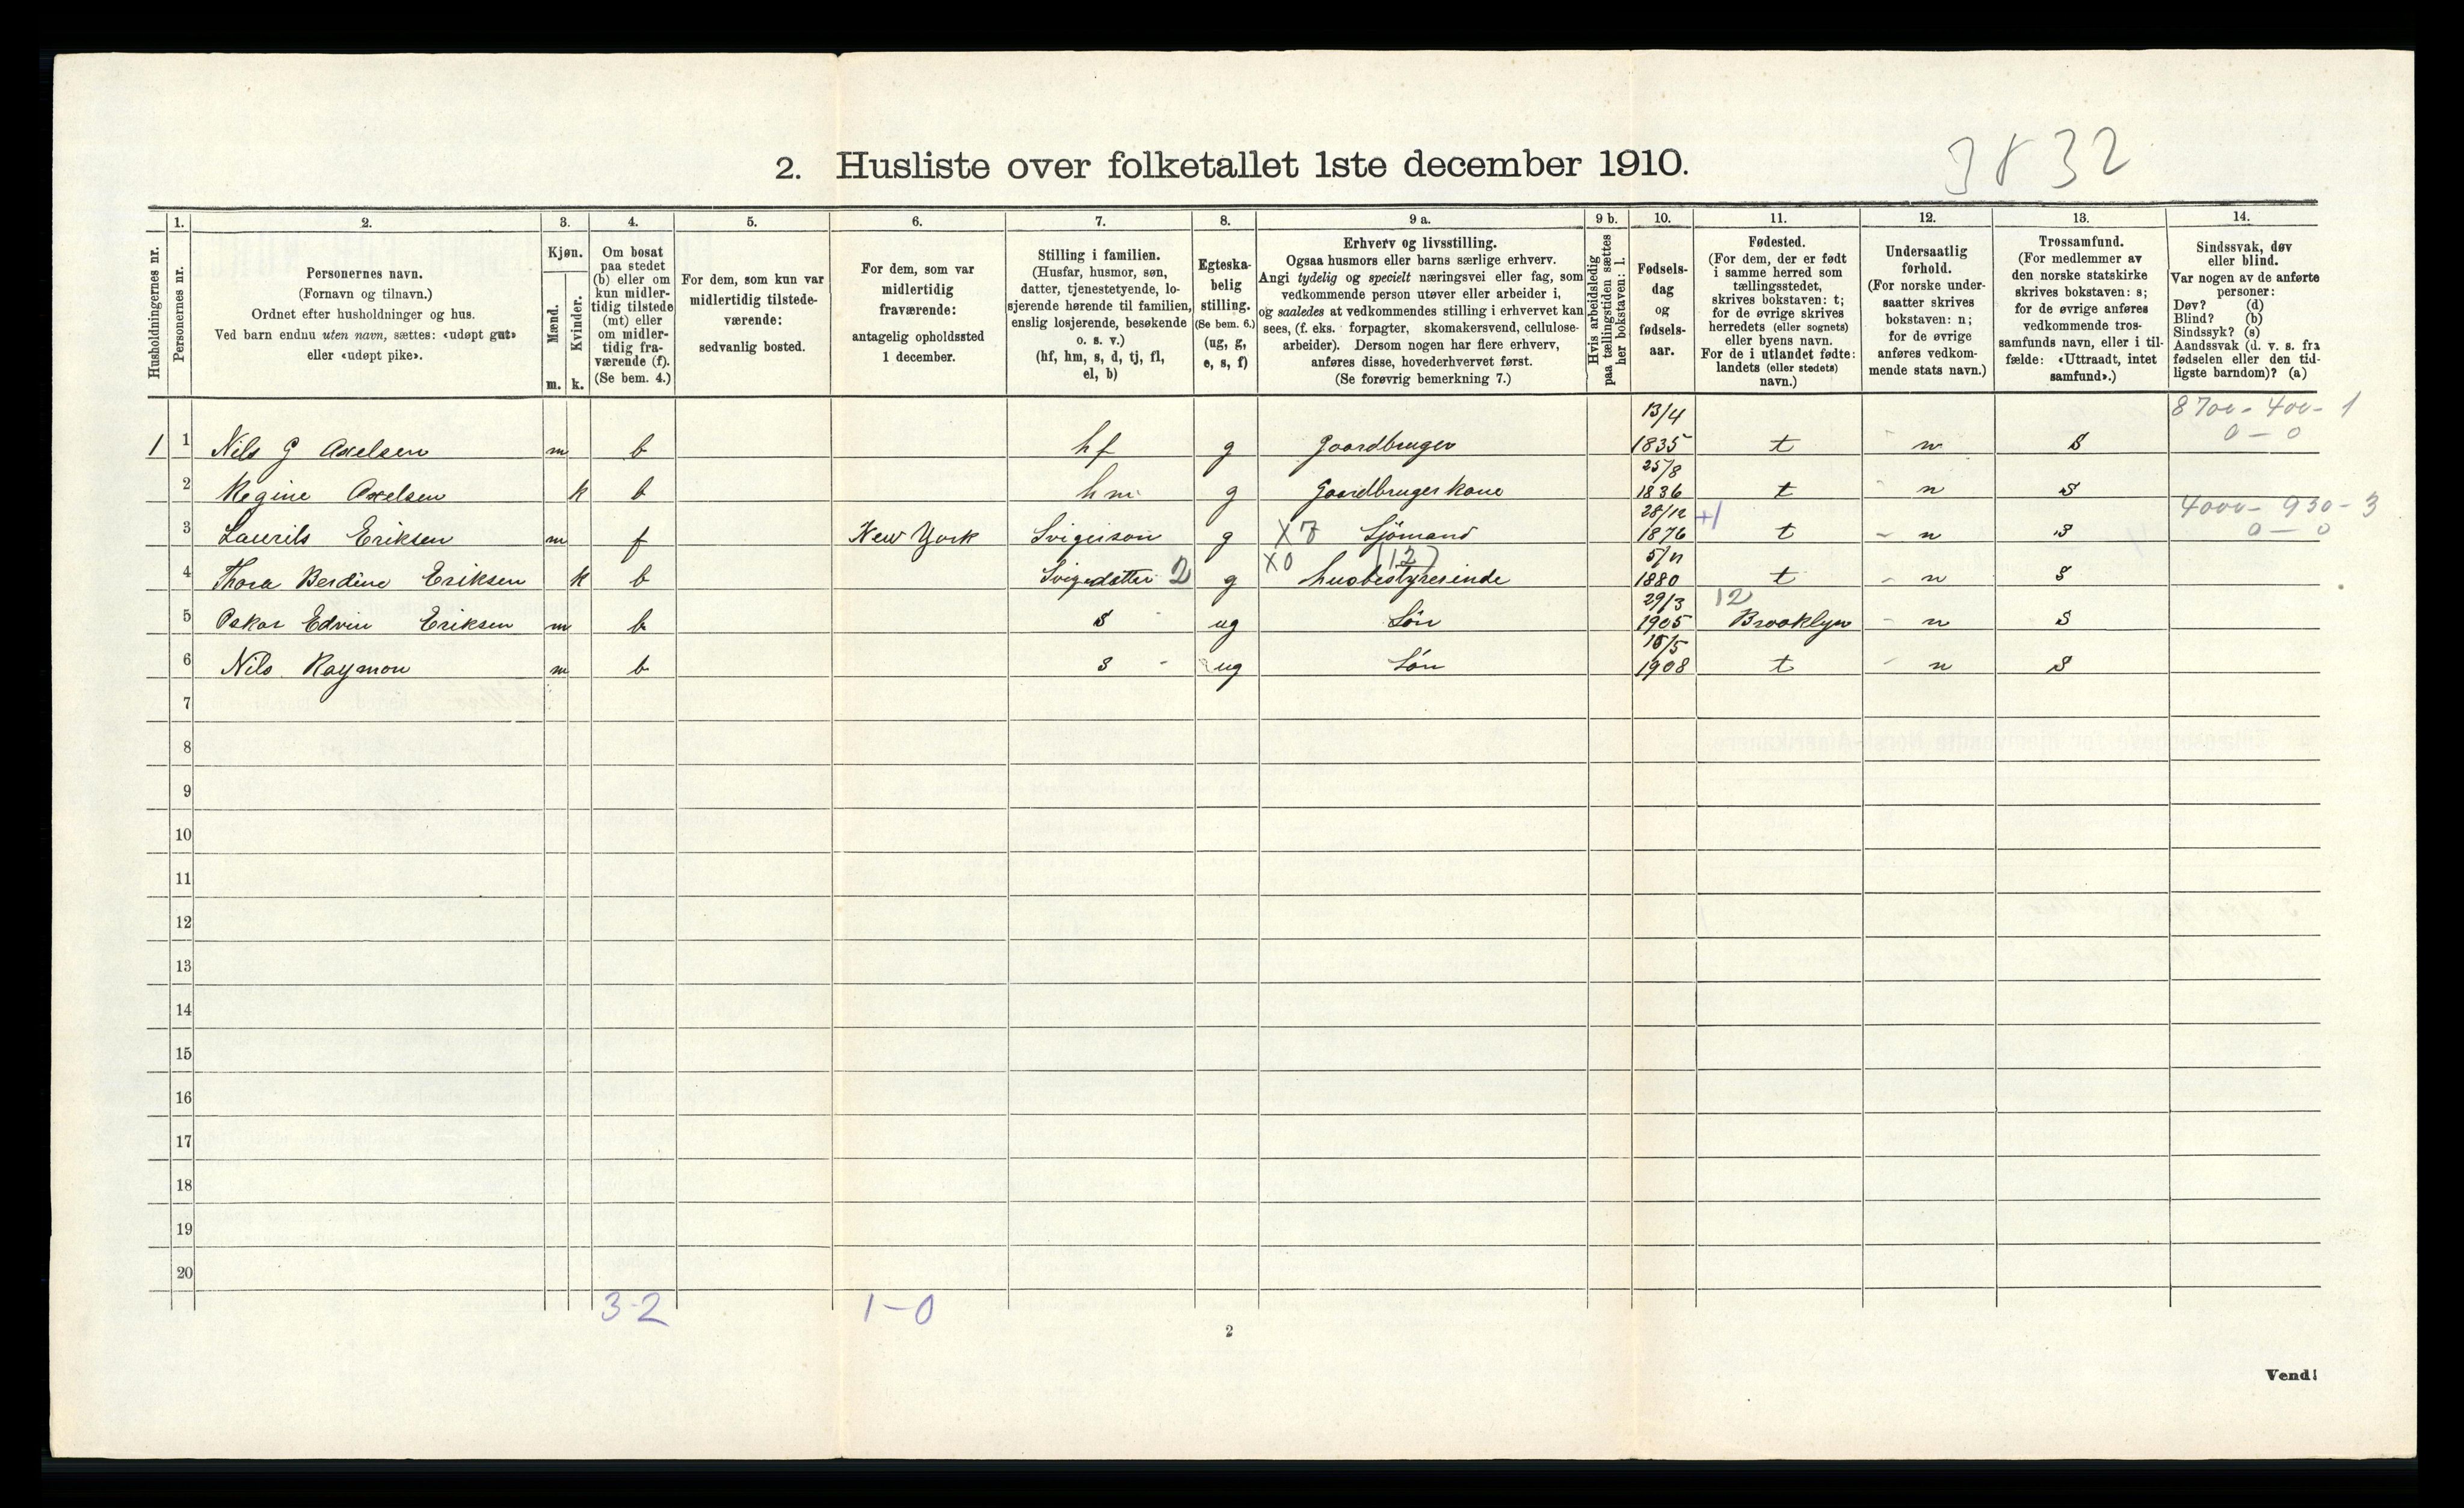 3832
2. Husliste over folketallet 1ste december 1910.
Husholdningernes nr.
1.
Personernes nr.
2.
Personernes navn.
(Fornavn og tilnavn.)
Ordnet efter husholdninger og hus.
Ved barn endnu uten navn, sættes: «udøpt gut»
eller «udøpt pike».
3.
Kjøn.
Mænd.
Kvinder.
m. k.
4.
Om bosat
paa stedet
(b) eller om
kun midler-
tidig tilstede
(mt) eller
om midler-
tidig fra-
værende (f).
(Se bem. 4.)
5.
For dem, som kun var
midlertidig tilstede-
værende:
sedvanlig bosted.
6.
For dem, som var
midlertidig
fraværende:
antagelig opholdssted
1 december.
7.
Stilling i familien.
(Husfar, husmor, søn,
datter, tjenestetyende, lo-
sjerende hørende til familien,
enslig losjerende, besøkende
o. s. v.)
(hf, hm, s, d, tj, fl,
el, b)
8.
Egteska-
belig
stilling.
(Se bem. 6.)
(ug, g,
e, s, f)
9 a.
Erhverv og livsstilling.
Ogsaa husmors eller barns særlige erhverv.
Angi tydelig og specielt næringsvei eller fag, som
vedkommende person utøver eller arbeider i,
og saaledes at vedkommendes stilling i erhvervet kan
sees, (f. eks. forpagter, skomakersvend, cellulose-
arbeider). Dersom nogen har flere erhverv,
anføres disse, hovederhvervet først.
(Se forøvrig bemerkning 7.)
9 b.
Hvis arbeidsledig
paa tællingstiden sættes
her bokstaven: l.
10.
Fødsels-
dag
og
fødsels-
aar.
11.
Fødested.
(For dem, der er født
i samme herred som
tællingsstedet,
skrives bokstaven: t;
for de øvrige skrives
herredets (eller sognets)
eller byens navn.
For de i utlandet fødte:
landets (eller stedets)
navn.)
12.
Undersaatlig
forhold.
(For norske under-
saatter skrives
bokstaven: n;
for de øvrige
anføres vedkom-
mende stats navn.)
13.
Trossamfund.
(For medlemmer av
den norske statskirke
skrives bokstaven: s;
for de øvrige anføres
vedkommende tros-
samfunds navn, eller i til-
fælde: «Uttraadt, intet
samfund».)
14.
Sindssvak, døv
eller blind.
Var nogen av de anførte
personer:
Døv? (d)
Blind? (b)
Sindssyk? (s)
Aandssvak (d. v. s. fra
fødselen eller den tid-
ligste barndom)? (a)
1 1 Nils G Axelsen m b hf g Gaardbruger 13/4 1835 t n S 8700 - 400 - 1
0 - 0
2 Regine Axelsen k b hm g Gaardbruger kone 25/8 1836 t n S
3 Laurits Eriksen m f New York Svigersøn g X7 Sjömand 28/12 1876 +1 t n S 4000 - 930 - 3
0 - 0
4 Thora Berdine Eriksen k b Svigedatter 2 g X0 husbestyrerinde (12) 5/11 1880 t n S
5 Oskar Edvin Eriksen m b s ug Sön 29/3 1905 12 Brooklyn n S
6 Nils Raymon m b s ug Sön 15/5 1908 t n S
7
8
9
10
11
12
13
14
15
16
17
18
19
20
3-2 1-0
2
Vend!